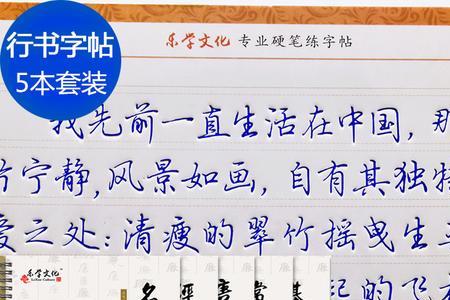 行书字帖
5本套装
乐学文化 专业硬笔练字帖
我先前一直生活在中国，那
宁静，风景如画，自有其独特
爱之处：清瘦的翠竹摇曳生
乐学文化
LeXue Culture